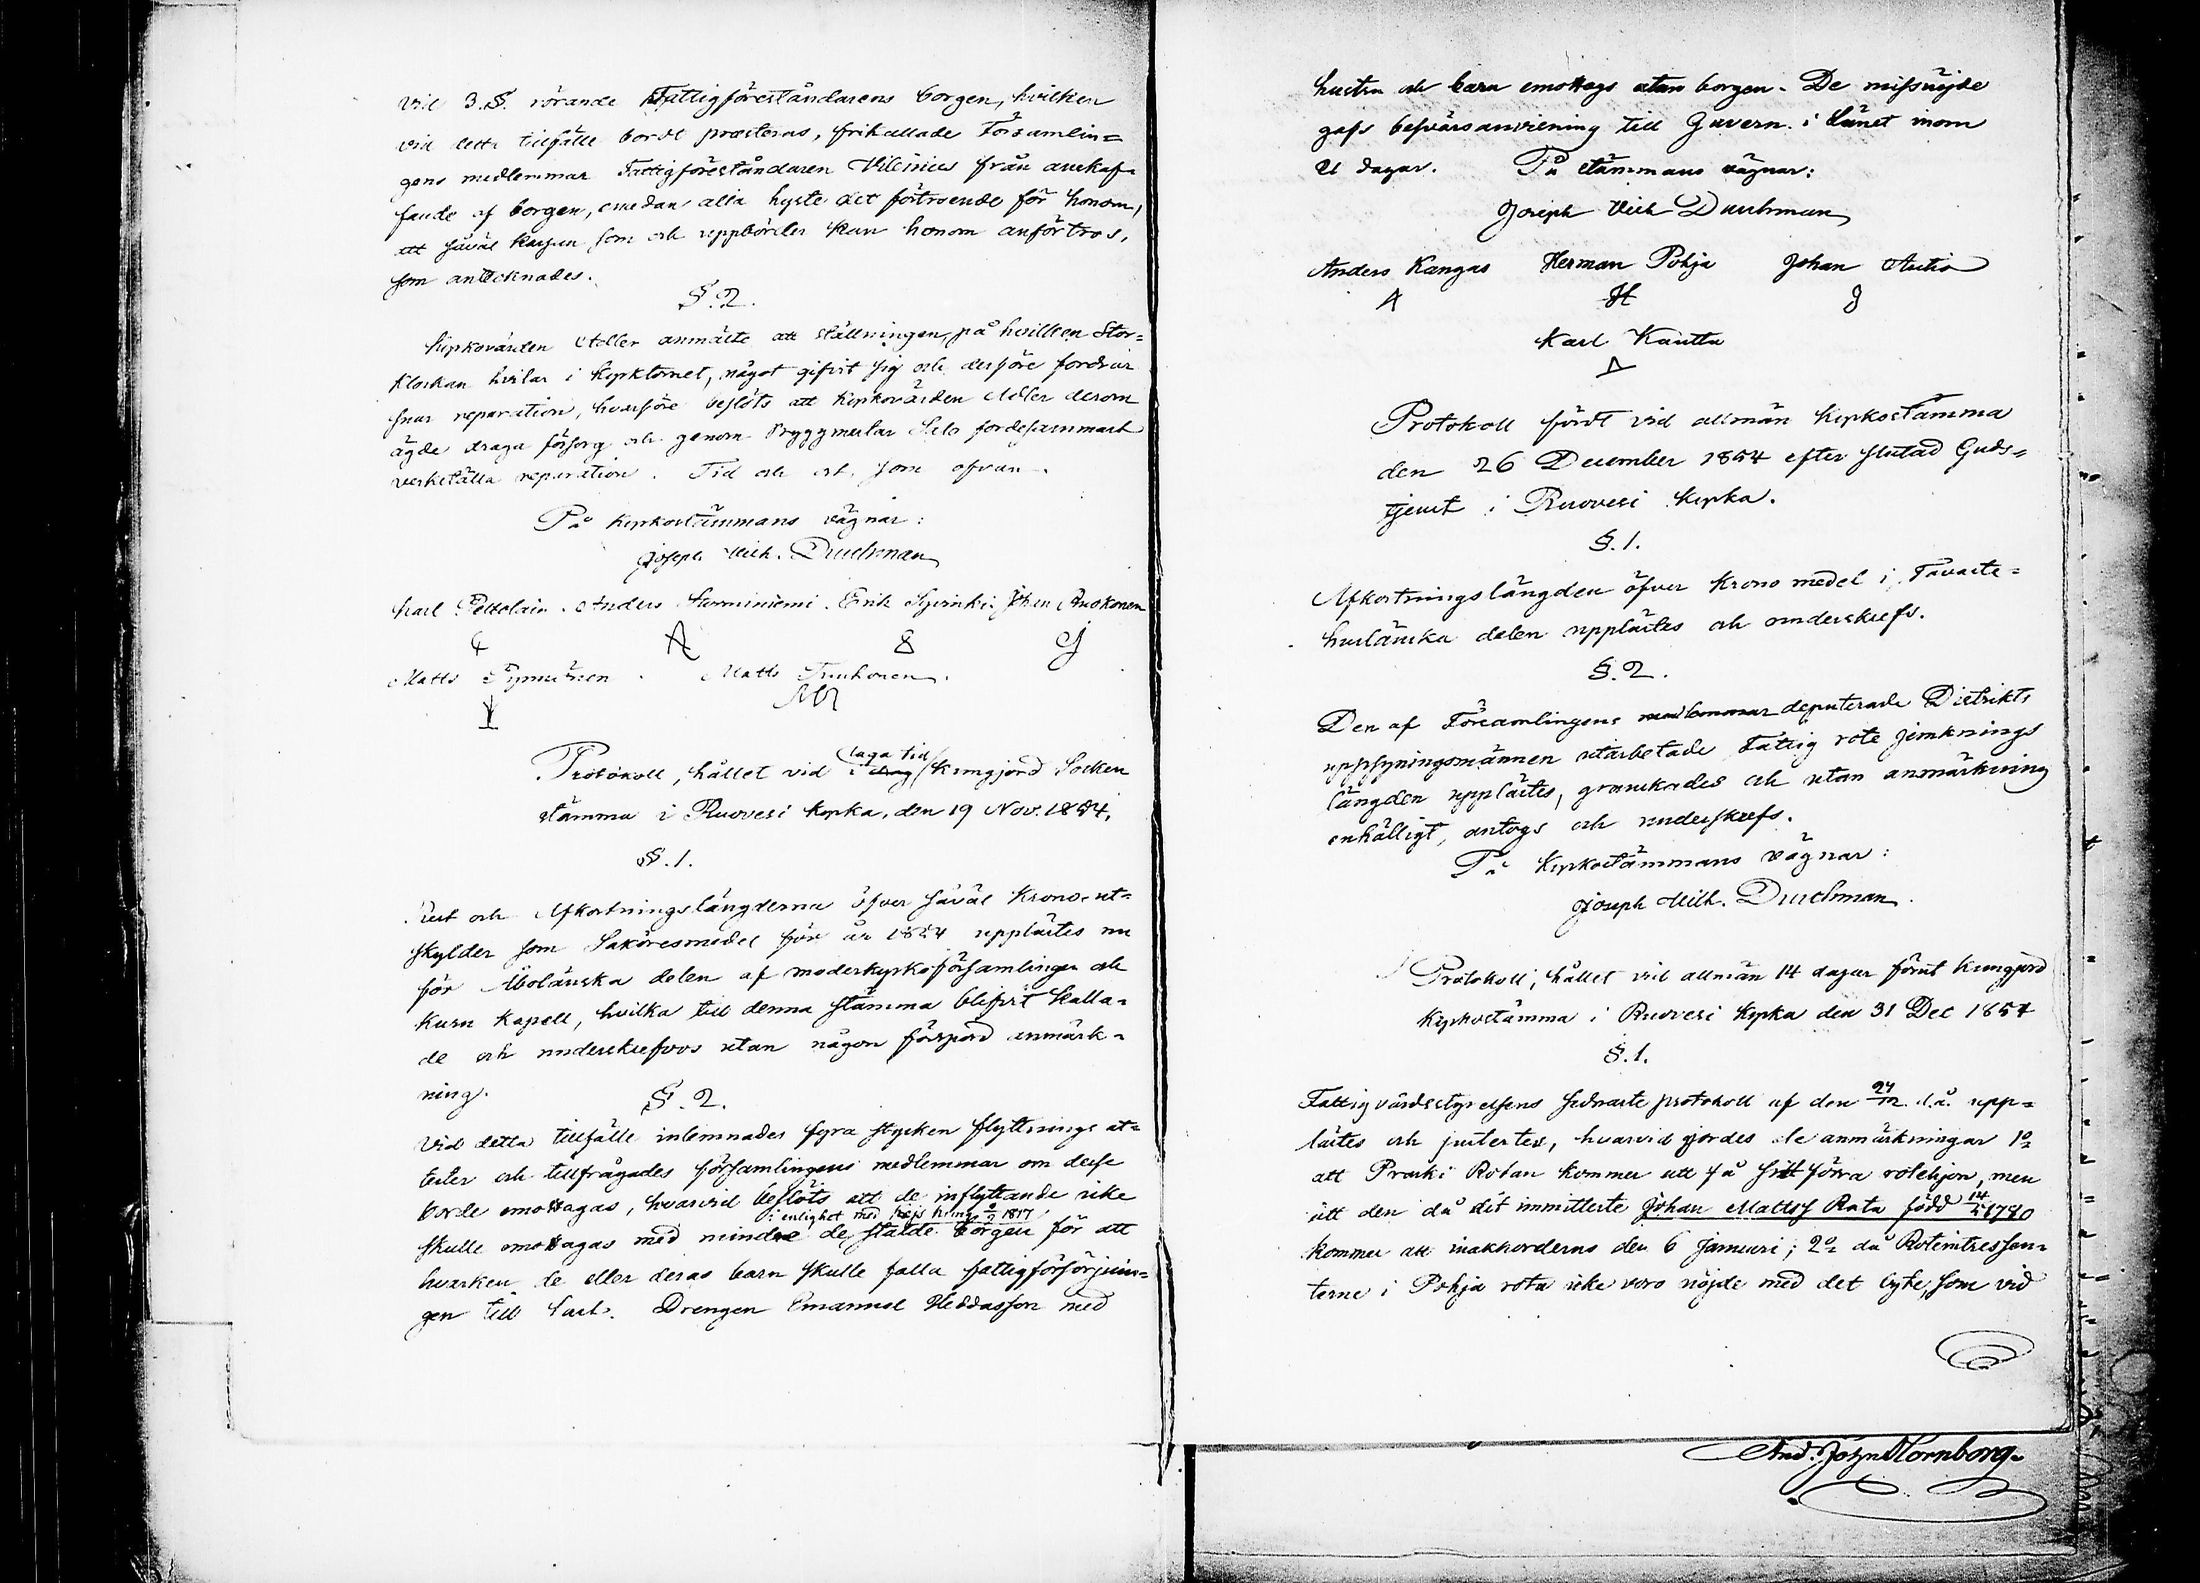 vid 3.§. rörande Fattigföreståndarens borgen, hvilken
vid detta tillfälle bordt præsteras, frikallade Församlin=
gens medlemmar Fattigföreståndaren Vilenius från anskaf=
fande af borgen, emedan alla hyste det förtroende för honom,
att såväl kassan som och uppbörder kan honom anförtros,
som antecknades.
§.2.
Kyrkovärden Adler anmälte att ställningen, på hvilken Stor=
klockan hvilar i kyrktornet, något gifvit sig och derföre fordrar
snar reparation, hvarföre beslöts att Kyrkovärden Adler derom
ägde draga försorg och genom Byggmästar Salo fordersammast
verkställa reparation. Tid och ort som ofvan.
På kyrkostämmans vägnar:
Joseph Wilh. Duchman
Karl Pettolain. Anders Surminiemi. Erik Syvinki. Johan Ruokonen
A J
Matts Pynninen. Matts Tuuhonen.
Protokoll, hållet vid i laga tid kungjord Socken
stämma i Ruovesi kyrka, den 19 Nov. 1854.
§.1.
Rest och Afkortningslängderna öfver såväl Krono-ut=
skylder som Saköresmedel för år 1854 upplästes nu
för Åbolänska delen af moderkyrkoförsamlingen och
Kuru Kapell, hvilka till denna stämma blifvit kalla=
de och underskrefvos utan någon förspord anmärk=
ning.
§.2.
Vid detta tillfälle inlemnades fyra stycken flyttnings at=
tester och tillfrågades församlingens medlemmar om desse
borde emottagas, hvarvid beslöts att de inflyttande icke
i enlighet med 1817
skulle emottagas med mindre de stälde borgen för att
hvarken de eller deras barn skulle falla fattigförsörjnin=
gen till last. Drengen Emanuel Heddasson med
hustru och barn emottogs utan borgen. De missnöjde
gafs besvärsanvisning till Guvern. i Länet inom
21 dagar. På stämmans vägnar:
Joseph Wilh Duchman
Anders Kangas Herman Pohja Johan Autio
A H J
Karl Kautta
Protokoll fördt vid allmän kyrkostämma
den 26 December 1854 efter slutad Guds=
tjenst i Ruovesi kyrka.
§.1.
Afkortningslängden öfver Krono medel i Tavaste=
huslänska delen upplästes och underskrefs.
§.2.
Den af Församlingens medlemmar deputerade Distrikts
uppsyningsmännen utarbetade Fattig rote jemknings
längden upplästes, granskades och utan anmärkning
enhälligt, antogs och underskrefs.
På Kyrkostämmans vägnar:
Joseph Wilh. Duchman.
Protokoll, hållet vid allmän 14 dagar förut kungjord
Kyrkostämma i Ruovesi Kyrka den 31 Dec 1854
§.1.
Fattigvårdsstyrelsens sednaste protokoll af den 27/12 d.å. upp=
lästes och justertes, hvarvid gjordes de anmärkningar 1o
att Pranki Rotan kommer att få sitt förra rotehjon, men
att den då dit inmitterte Johan Mattss Rata född 14/5 1790
kommer att inackorderas den 6 Januari; 2o då Rotintressen=
terne i Pohja rota icke voro nöjde med det byte, som vid
And. John Hornborg.